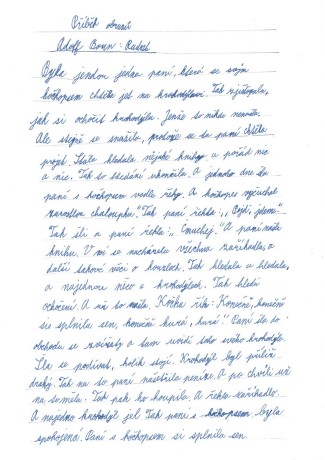 Příběh obrazů
Adolf Born: Radost
Byla jednou jedna paní, která se svým
kočkopsem chtěla jet na krokodýlovi. Tak zjišťovala,
jak si ochočit krokodýla. Jenže to nikdo nevěděl.
Ale stejně se snažila, protože se ta paní chtěla
projet. Stále hledala nějaké knihy a pořád nic
a nic. Tak to hledání ukončila. A jednoho dne šla
paní s kočkopsem vedle řeky. A kočkopes vyčuchal
zarostlou chaloupku. Tak paní řekla: „Pojď, jdem."
Tak šli a paní řekla: „Čmuchej." A paní našla
knihu. V ní se nacházela všechna zaříkadla a
další takové věci o kouzlech. Tak hledala a hledala,
a najednou něco o krokodýlech. Tak hledá
ochočení. A už to našla. Kočka říká: Konečně, konečně
se splnila sen, konečně hurá, hurá." Paní šla do
obchodu se zvířaty a tam uvidí toho svého krokodýla.
Šla se podívat, kolik stojí. Krokodýl byl příliš
drahý. Tak na to paní našetřila peníze. A po chvíli už
na to měla. Tak ho koupila. A řekla zaříkadlo.
A najedno krokodýl jel. Tak paní s kočkopsem byla
spokojená. Paní s kočkopsem si splnila sen.